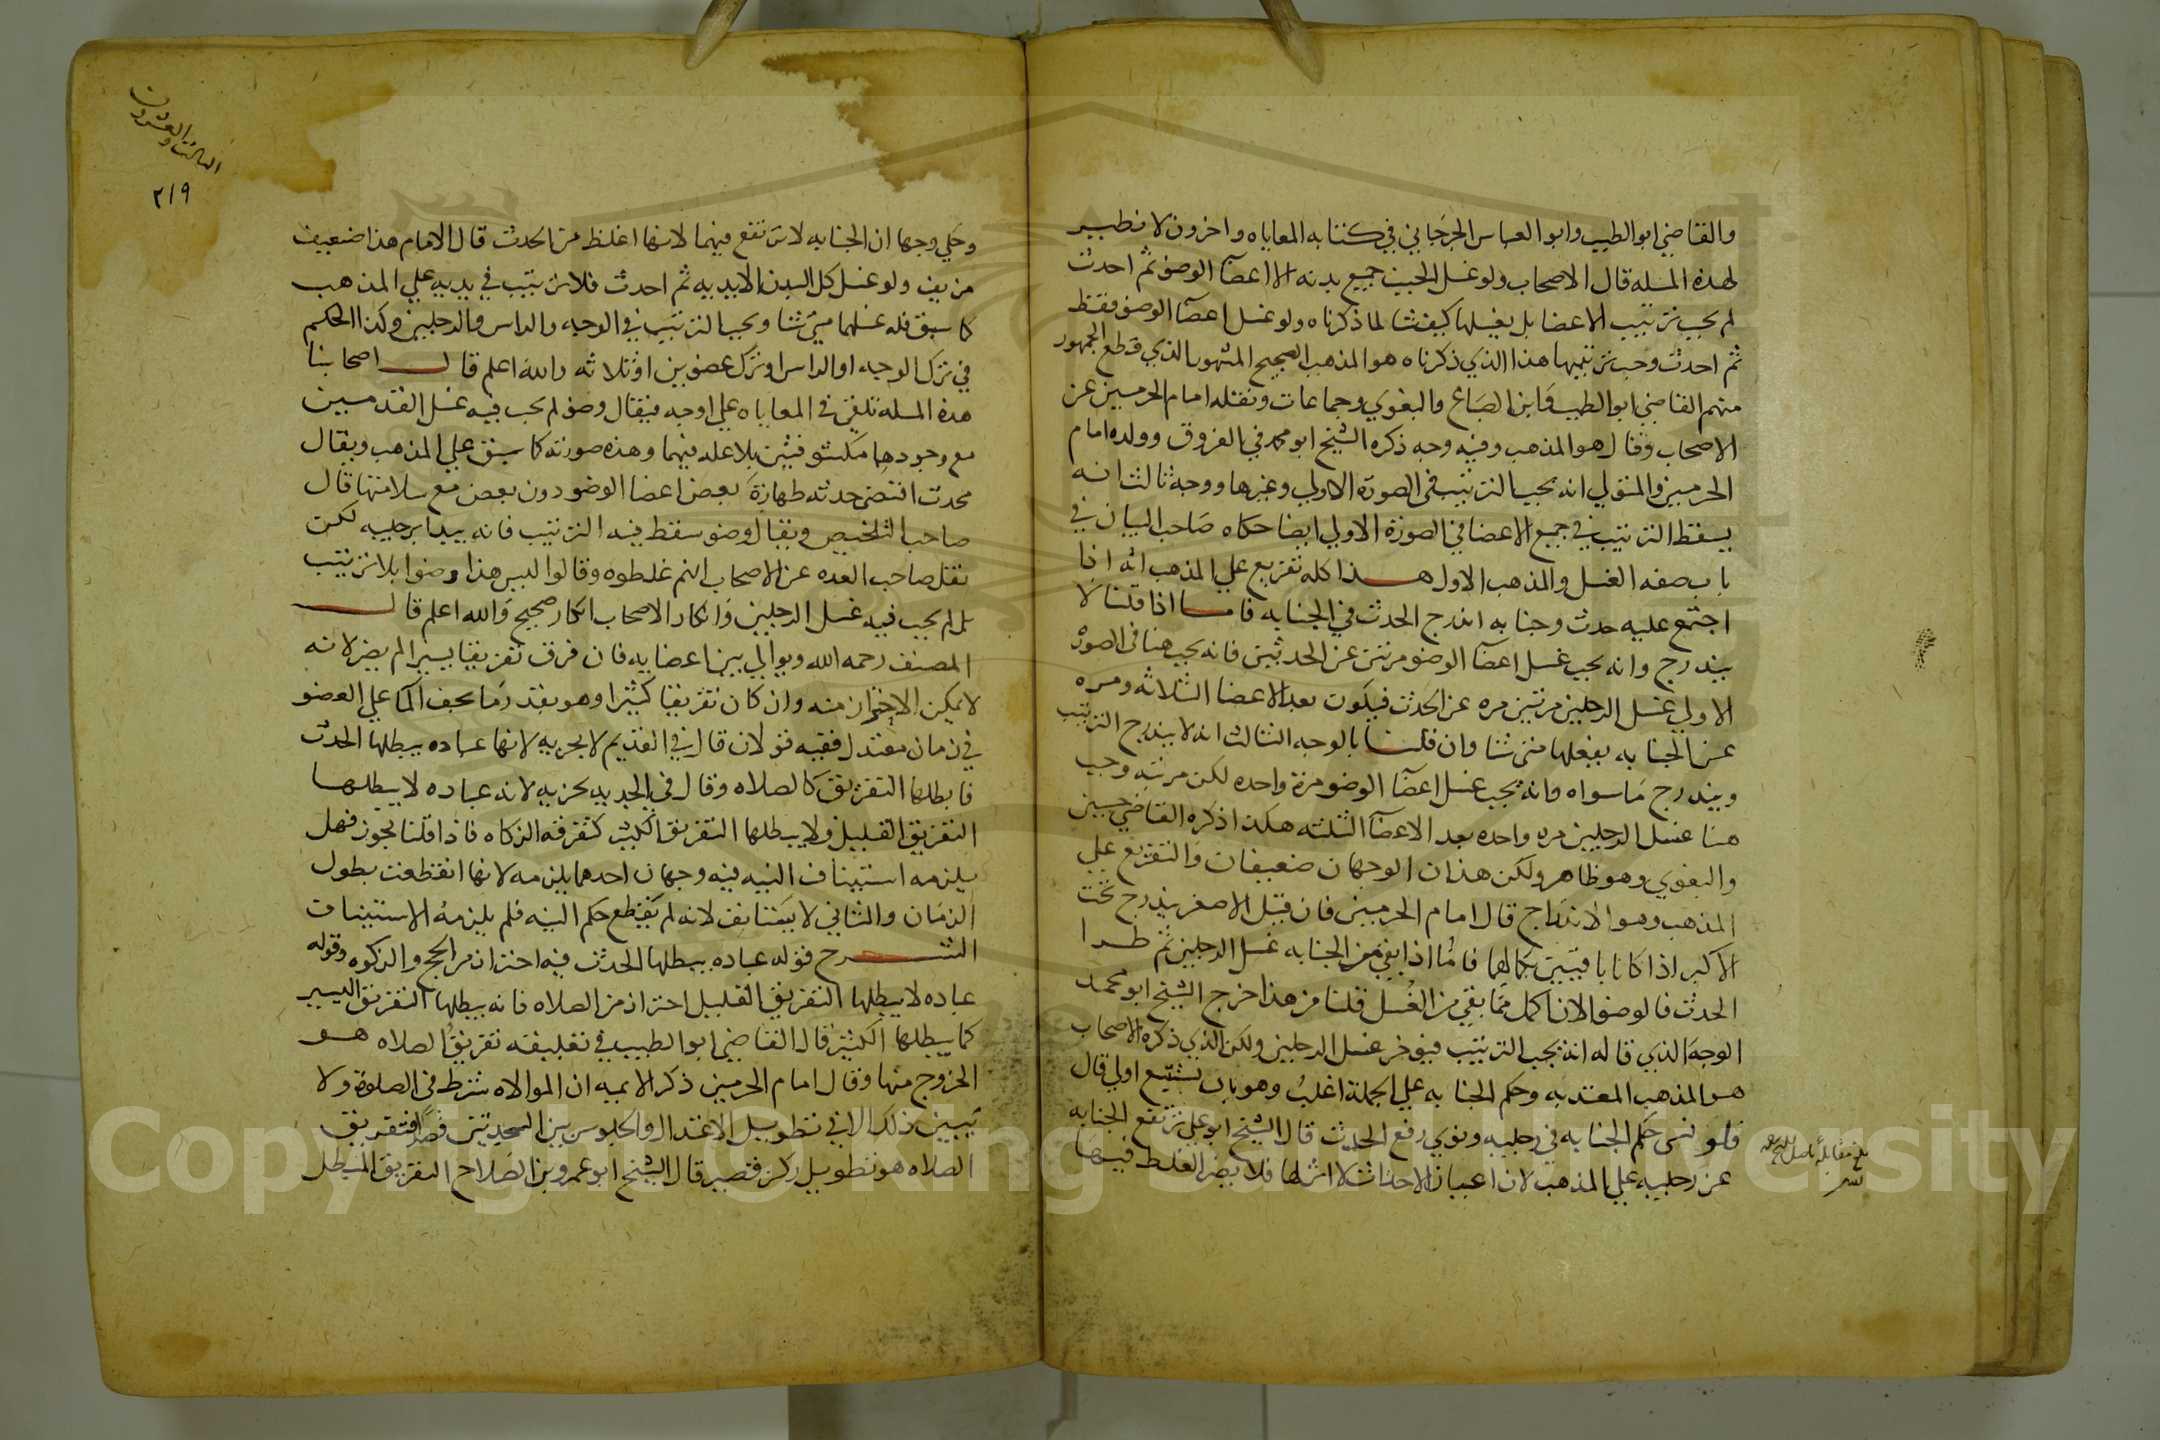 والقاضي ابو الطيب وابو العباس الجرجاني في كتابه المعاياه واخرون لا نظير
لهذه المسله قال الاصحاب ولو غسل الجنب جميع بدنه الا اعضآ الوضو ثم احدث
لم يجب ترتيب الاعضا بل يغسلها كيف شا لما ذكرناه ولو غسل اعضآ الوضو فقط
ثم احدث وجب ترتيبها هذا الذي ذكرناه هو المذهب الصحيح المشهور الذي قطع الجمهور
منهم القاضي ابو الطيب وابن الصباغ والبغوي وجماعات ونقله امام الحرمين عن
الاصحاب وقال هو المذهب وفيه وجه ذكره الشيخ ابو محمد في الفروق وولده امام
الحرمين والمتولي انه يجب الترتيب في الصورة الاولي وغيرها ووجه ثالث انه
يسقط الترتيب في جميع الاعضا في الصورة الاولي ايضا حكاه صاحب البيان في
باب صفه الغسل والمذهب الاول هذا كله تفريع علي المذهب انه اذا
اجتمع عليه حدث وجنابه اندرج الحدث في الجنابه فاما اذا قلنا لا
يندرج وانه يجب غسل اعضآ الوضو مرتين عن الحدثين فانه يجب هنا في الصورة
الاولي غسل الرجلين مرتين مره عن الحدث فيكون بعد الاعضا الثلاثه ومره
عن الجنابه يفعلها متي شا وان قلنا بالوجه الثالث انه لا يندرج الترتيب
ويندرج ما سواه فانه يجب غسل اعضآ الوضو مرة واحده لكن مرتبه وجب
هنا غسل الرجلين مره واحده بعد الاعضآ الثلثه هكذا ذكره القاضي حسين
والبغوي وهو ظاهر ولكن هذان الوجهان ضعيفان والتفريع علي
المذهب وهو الاندراج قال امام الحرمين فان قيل الاصغر يندرج تحت
الاكبر اذا كانا باقيين بكمالهما فاما اذا بقي من الجنابه غسل الرجلين ثم طرا
الحدث فالوضو الان اكمل مما بقي من الغسل قلنا من هذا خرج الشيخ ابو محمد
الوجه الذي قاله انه يجب الترتيب فيوخر غسل الرجلين ولكن الذي ذكره الاصحاب
هو المذهب المعتد به وحكم الجنابه علي الجملة اغلب وهو بان يستتبع اولي قال
فلو نسي حكم الجنابه في رجليه ونوي رفع الحدث قال الشيخ ابو علي ترتفع الجنابه
عن رجليه علي المذهب لان اعيان الاحداث لا اثر لها فلا يضر الغلط فيها
بلغ مقابلة باصل
الثالث والعشرون
٢١٩
وحكي وجها ان الجنابه لا ترتفع فيهما لانها اغلظ من الحدث قال الامام هذا ضعيف
مزيف ولو غسل كل البدن الا يديه ثم احدث فلا ترتيب في يديه علي المذهب
كما سبق فله غسلهما متي شا ويجب الترتيب في الوجه والراس والرجلين وكذا الحكم
في ترك الوجه او الراس او ترك عضوين او ثلاثه والله اعلم قال اصحابنا
هذه المسله تلقي في المعاياه علي اوجه فيقال وضو لم يجب فيه غسل القدمين
مع وجودهما مكشوفتين بلا عله فيهما وهذه صورته كما سبق علي المذهب ويقال
محدث اقتضي حدثه طهارة بعض اعضا الوضو دون بعض مع سلامتها قال
صاحب التلخيص ويقال وضو سقط فيه الترتيب فانه يبدا برجليه لكن
نقل صاحب العده عن الاصحاب انهم غلطوه وقالوا ليس هذا وضوا بلا ترتيب
بل لم يجب فيه غسل الرجلين وانكار الاصحاب انكار صحيح والله اعلم قال
المصنف رحمه الله ويوالي بين اعضايه فان فرق تفريقا يسيرا لم يضر لانه
لا يمكن الاحتراز منه وان كان تفريقا كثيرا وهو بقدر ما يجف الما علي العضو
في زمان معتدل ففيه قولان قال في القديم لا يجزيه لانها عباده يبطلها الحدث
فابطلها التفريق كالصلاه وقال في الجديد يجزيه لانه عباده لا يبطلها
التفريق القليل ولا يبطلها التفريق الكثير كتفرقه الزكاه فاذا قلنا يجوز فهل
يلزمه استيناف النيه فيه وجهان احدهما يلزمه لانها انقطعت بطول
الزمان والثاني لا يستانف لانه لم يقطع حكم النيه فلم يلزمه الاستيناف
الشرح قوله عباده يبطلها الحدث فيه احتراز من الحج والزكوه وقوله
عباده لا يبطلها التفريق القليل احتراز من الصلاه فانه يبطلها التفريق اليسير
كما يبطلها الكثير قال القاضي ابو الطيب في تعليقه تفريق الصلاه هو
الخروج منها وقال امام الحرمين ذكر الايمه ان الموالاه شرط في الصلوة ولا
يتبين ذلك الا في تطويل الاعتدال والجلوس بين السجدتين فتفريق
الصلاه هو تطويل ركن قصير قال الشيخ ابو عمرو بن الصلاح التفريق المبطل
Copyright © King Saud University